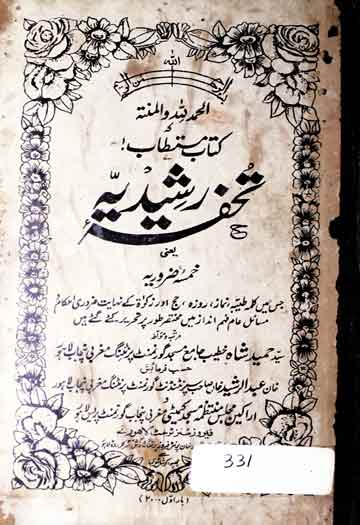 اللہ
الحمد للہ والمنتہ
کتاب مستطاب!
تحفہ رشیدیہ
یعنی
خمسہ ضروریہ
جس میں کلمہ طیبہ، نماز، روزہ، حج اور زکوٰۃ کے نہایت ضروری احکام و
مسائل عام فہم انداز میں مختصر طور پر تحریر کئے گئے ہیں
مرتبہ و مؤلفہ
سید حمید شاہ خطیب جامع مسجد گورنمنٹ پرنٹنگ مغربی پنجاب لاہور
حسب فرمائش
خان عبد الرشید خان صاحب سپرنٹنڈنٹ گورنمنٹ پرنٹنگ مغربی پنجاب لاہور
اراکین مجلس منتظمہ مسجد کمیٹی مغربی پنجاب گورنمنٹ پریس لاہور
331
(بار اول ۲۰۰۰)